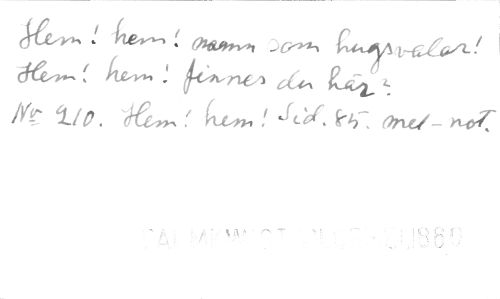 Hem! hem! namn som hugsvalar!
Hem! hem! finnes du här?
No 210. Hem! hem! Sid. 85. mel-not.